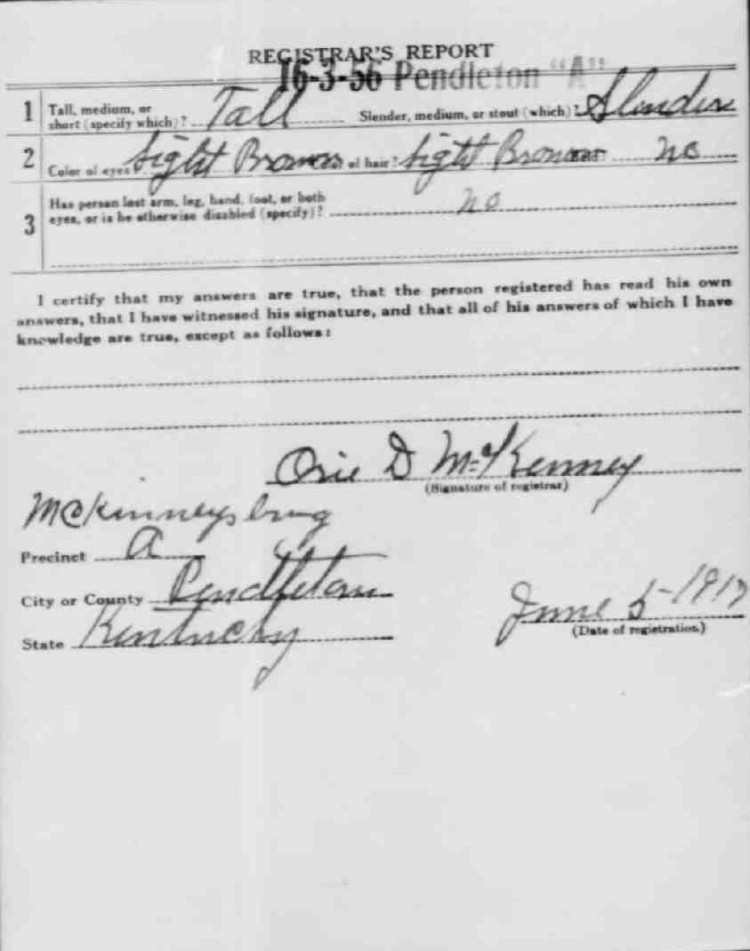 REGISTRAR'S REPORT
16-3-56 Pendleton "A"
1 Tall, medium, or short (specify which)? Tall Slender, medium, or stout (which)? Slender
2 Color of eyes Light Brown of hair? Light Brown no
3 Has person lost arm, leg, hand, foot, or both
eyes, or is he otherwise disabled (specify)? no
I certify that my answers are true, that the person registered has read his own
answers, that I have witnessed his signature, and that all of his answers of which I have
knowledge are true, except as follows:
Orie D McKenney
(Signature of registrar)
McKinneysburg
Precinct A
City or County Pendleton
State Kentucky
June 5-1917
(Date of registration)